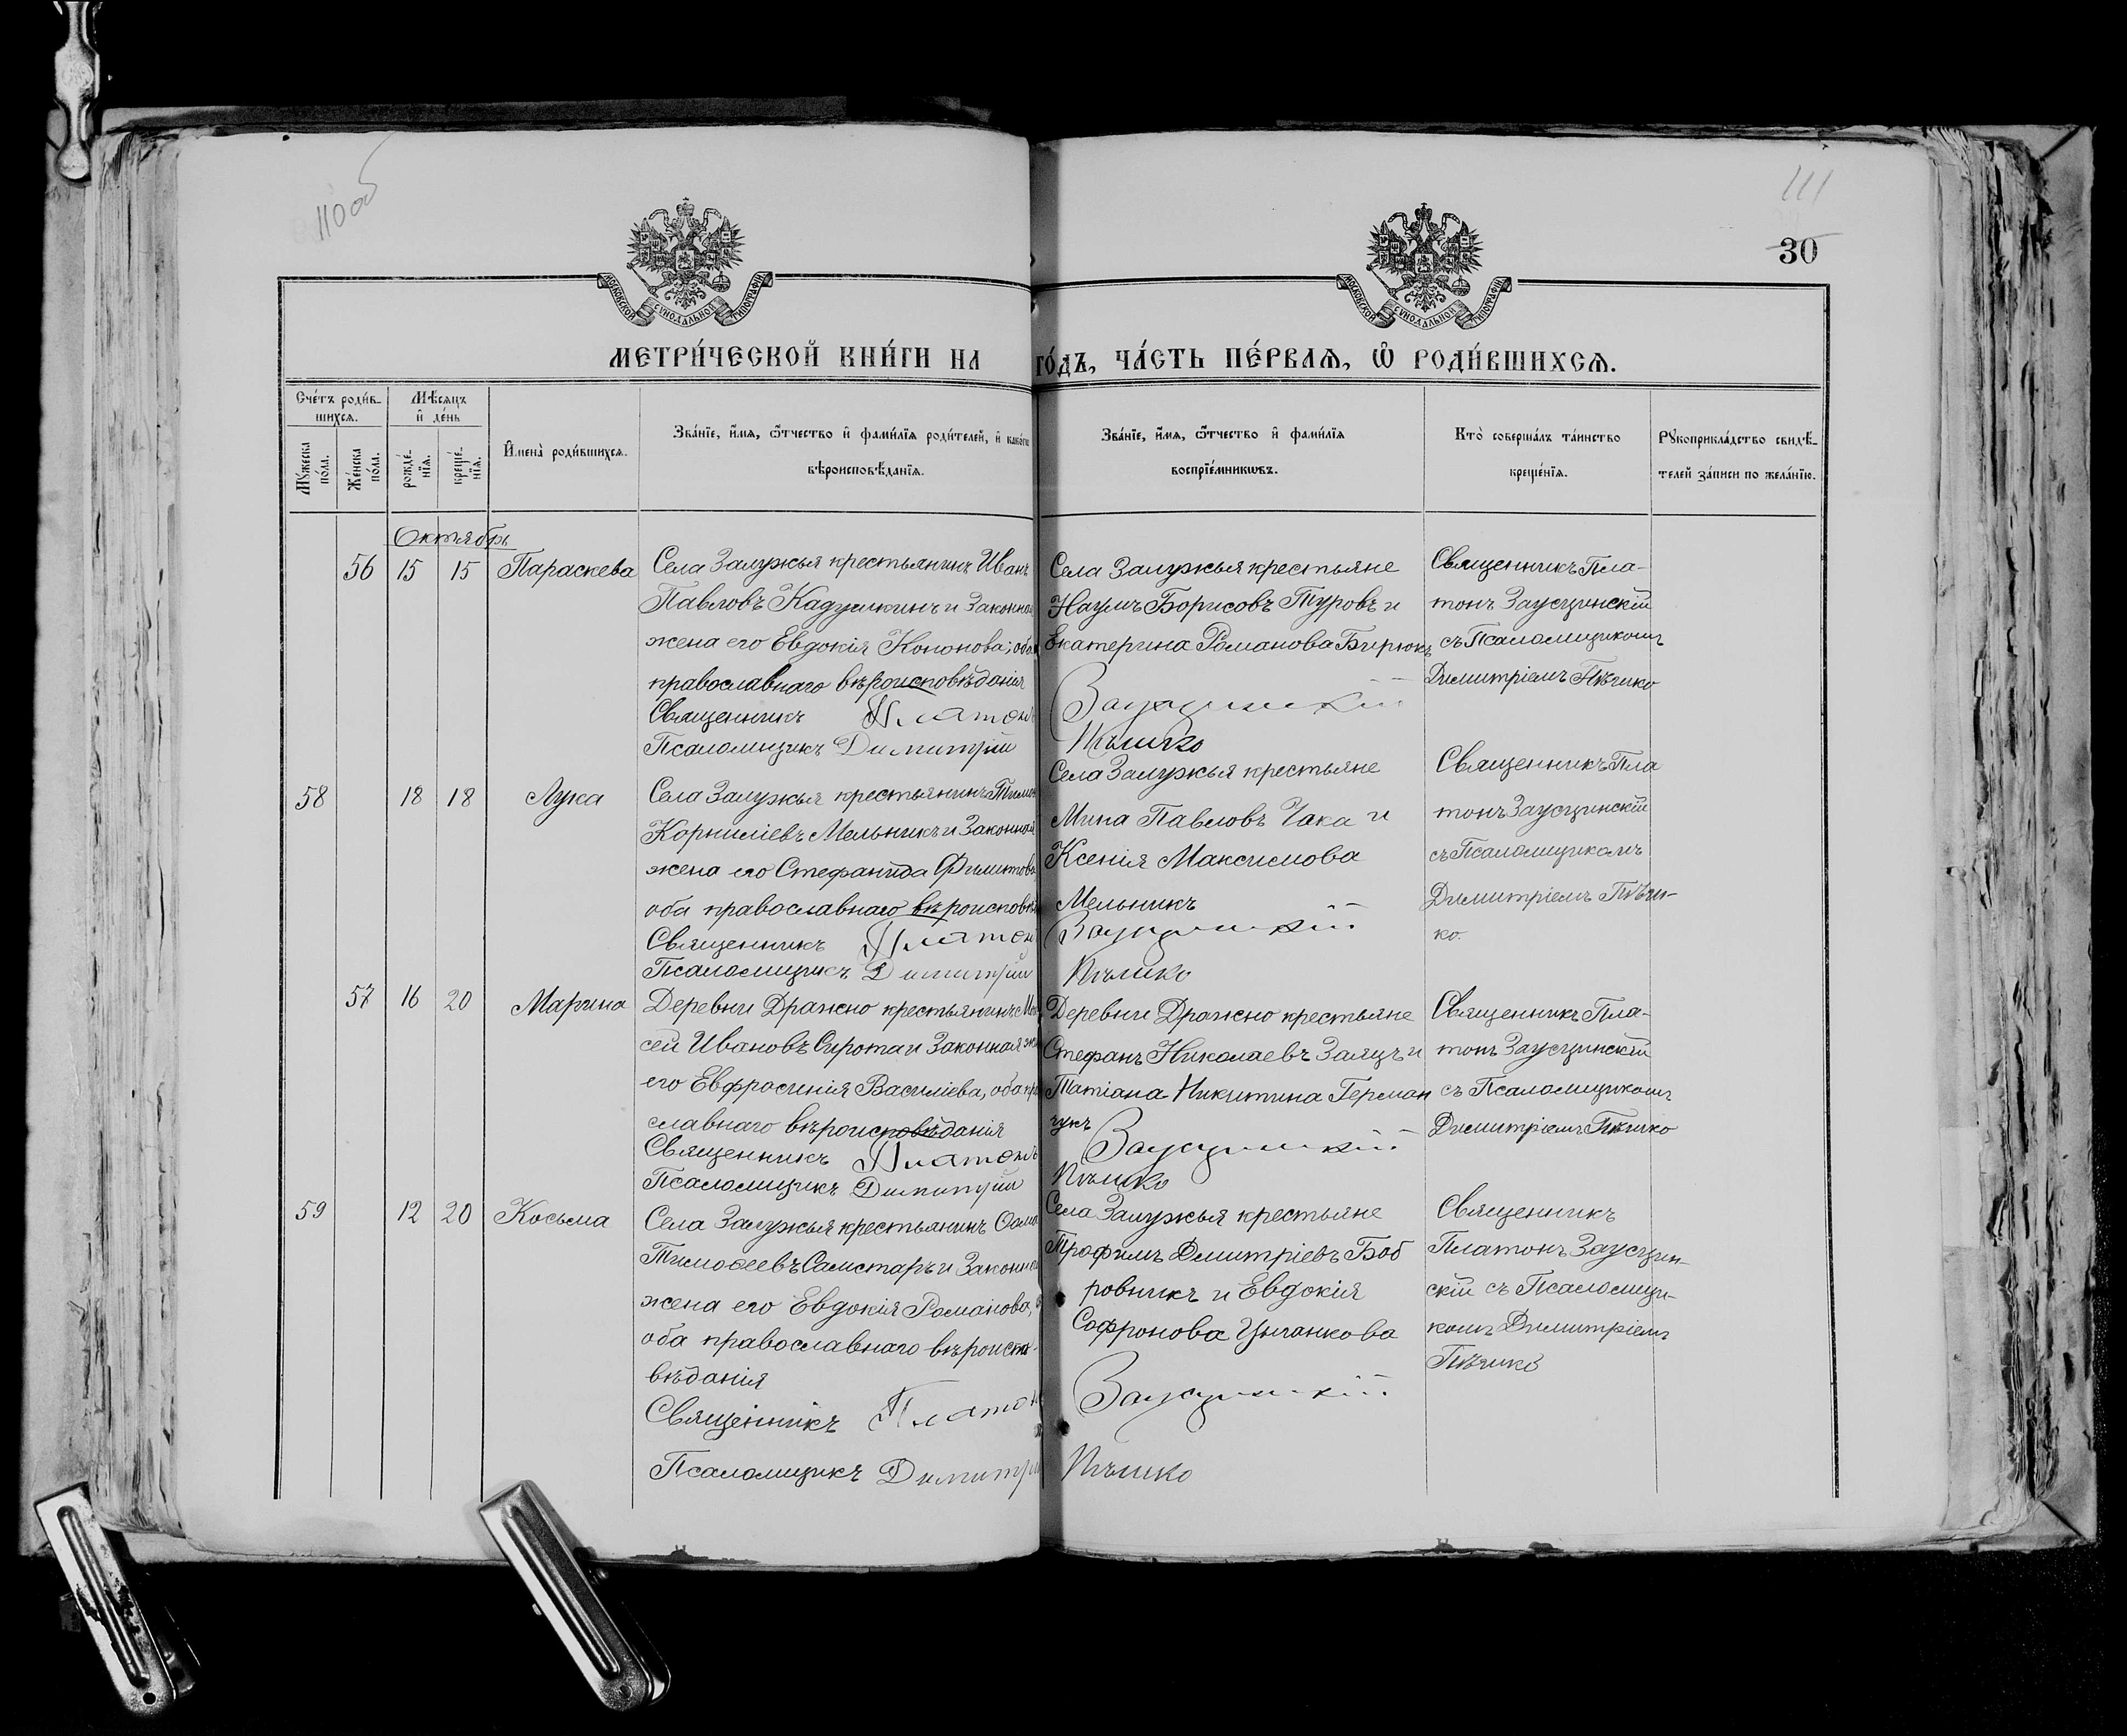 110 об
111
30
МОСКОВСКОЙ СУНОДАЛЬНОЙ ТИПОГРАФІИ
МОСКОВСКОЙ СУНОДАЛЬНОЙ ТИПОГРАФІИ
МЕТРИ́ЧЕСКОЙ КНИ́ГИ НА ГО́ДЪ, ЧА́СТЬ ПЕ́РВАѦ, Ѽ РОДИ́ВШИХСѦ.
Сче́тъ роди́в-
шихсѧ.
Мꙋ́жеска по́ла.
Же́нска по́ла.
Мѣ́сѧцъ
и҆ де́нь
рожде́-нїѧ.
креще́-нїѧ.
И҆мена̀ роди́вшихсѧ.
Зва́нїе, и҆́мѧ, ѻ҆́тчество и҆ фами́лїѧ роди́телей, и҆ како́гѡ
вѣроисповѣ́данїѧ.
Зва́нїе, и҆́мѧ, ѻ҆́тчество и҆ фами́лїѧ
воспрїе́мникѡвъ.
Кто̀ соверша́лъ та́инство
креще́нїѧ.
Рꙋкоприкла́дство свидѣ́-
телей за́писи по жела́нїю.
Октябрь
56 15 15 Параскева
Села Залужья крестьянинъ Иванъ
Павловъ Кадушкинъ и законная
жена его Евдокія Кононова; оба
православнаго вѣроисповѣданія
Священникъ Платонъ
Псаломщикъ Димитрій
Села Залужья крестьяне
Наумъ Борисовъ Туровъ и
Екатерина Романова Бирюкъ
Заусцинскій
Пѣшко
Священникъ Пла-
тонъ Заусцинскій
съ Псаломщикомъ
Димитріемъ Пѣшко
58 18 18 Лука
Села Залужья крестьянинъ
Корниліевъ Мельникъ и законная
жена его Стефанида
оба православнаго вѣроисповѣ
Священникъ Платонъ
Псаломщикъ Димитрій
Села Залужья крестьяне
Мина Павловъ Чака и
Ксенія Максимова
Мельникъ
Заусцинскій
Пѣшко
Священникъ Пла
тонъ Заусцинскій
съ Псаломщикомъ
Димитріемъ Пѣш-
ко.
57 16 20 Марина
Деревни Дражно крестьянинъ Мои
сей Ивановъ Сирота и законная же
его Евфросинія Василіева, оба пра
славнаго вѣроисповѣданія
Священникъ Платонъ
Псаломщикъ Димитрій
Деревни Дражно крестьяне
Стефанъ Николаевъ Заяцъ и
Татіана Никитина Герман
чукъ
Заусцинскій
Пѣшко
Священникъ Пла-
тонъ Заусцинскій
съ Псаломщикомъ
Димитріемъ Пѣшко
59 12 20 Косьма
Села Залужья крестьянинъ Ѳома
Тимоѳеевъ Самстаръ и законная
жена его Евдокія Романова,
оба православнаго вѣроиспо-
вѣданія
Священникъ Платонъ
Псаломщикъ Димитрій
Села Залужья крестьяне
Трофимъ Дмитріевъ Боб
ровникъ и Евдокія
Софронова Цыганкова
Заусцинскій
Пѣшко
Священникъ
Платонъ Заусцин-
скій съ Псаломщи-
комъ Димитріемъ
Пѣшко